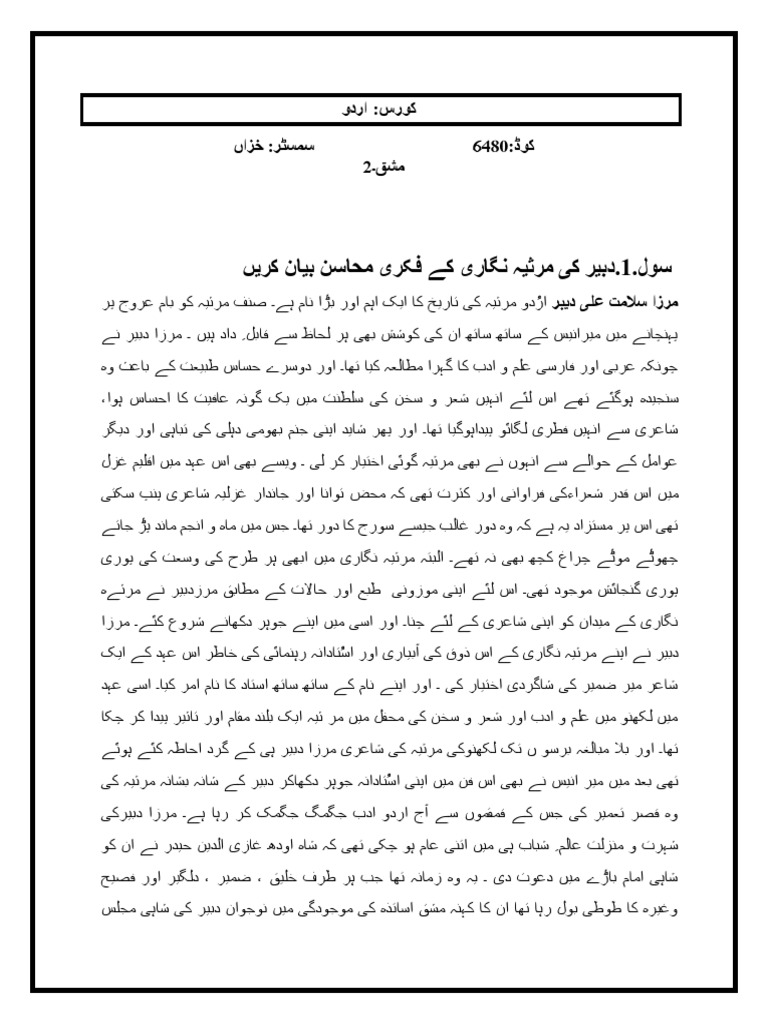 کورس: اردو
کوڈ:6480 سمسٹر: خزاں
مشق۔2
سول.1.دبیر کی مرثیہ نگاری کے فکری محاسن بیان کریں
مرزا سلامت علی دیبر ارُدو مرثیہ کی تاریخ کا ایک اہم اور بڑا نام ہے۔ صنف مرثیہ کو بام عروج پر
پہنچانے میں میرانیس کے ساتھ ساتھ ان کی کوشش بھی ہر لحاظ سے قابل ِ داد ہیں ۔ مرزا دبیر نے
چونکہ عربی اور فارسی علم و ادب کا گہرا مطالعہ کیا تھا۔ اور دوسرے حساس طبیعت کے باعث وہ
سنجیدہ ہوگئے تھے اس لئے انہیں شعر و سخن کی سلطنت میں یک گونہ عافیت کا احساس ہوا،
شاعری سے انہیں فطری لگائو پیداہوگیا تھا۔ اور پھر شاید اپنی جنم بھومی دہلی کی تباہی اور دیگر
عوامل کے حوالے سے انہوں نے بھی مرثیہ گوئی اختیار کر لی ۔ ویسے بھی اس عہد میں اقلیم غزل
میں اس قدر شعراءکی فراوانی اور کثرت تھی کہ محض توانا اور جاندار غزلیہ شاعری پنپ سکتی
تھی اس پر مستزاد یہ ہے کہ وہ دور غالب جیسے سورج کا دور تھا۔ جس میں ماہ و انجم ماند پڑ جاتے
چھوٹے موٹے چراغ کچھ بھی نہ تھے۔ البتہ مرثیہ نگاری میں ابھی ہر طرح کی وسعت کی پوری
پوری گنجائش موجود تھی۔ اس لئے اپنی موزونی طبع اور حالات کے مطابق مرزدبیر نے مرثےہ
نگاری کے میدان کو اپنی شاعری کے لئے چنا۔ اور اسی میں اپنے جوہر دکھانے شروع کئے۔ مرزا
دبیر نے اپنے مرثیہ نگاری کے اس ذوق کی آبیاری اور اسُتادانہ رہنمائی کی خاطر اس عہد کے ایک
شاعر میر ضمیر کی شاگردی اختیار کی ۔ اور اپنے نام کے ساتھ ساتھ استاد کا نام امر کیا۔ اسی عہد
میں لکھنو میں علم و ادب اور شعر و سخن کی محفل میں مر ثیہ ایک بلند مقام اور تاثیر پیدا کر چکا
تھا۔ اور بلا مبالغہ برسو ں تک لکھنوکی مرثیہ کی شاعری مرزا دبیر ہی کے گرد احاطہ کئے ہوئے
تھی بعد میں میر انیس نے بھی اس فن میں اپنی اسُتادانہ جوہر دکھاکر دبیر کے شانہ بشانہ مرثیہ کی
وہ قصر تعمیر کی جس کے قمقموں سے آج اردو ادب جگمگ جگمک کر رہا ہے۔ مرزا دبیرکی
شہرت و منزلت عالم ِ شباب ہی میں اتنی عام ہو چکی تھی کہ شاہ اودھ غازی الدین حیدر نے ان کو
شاہی امام باڑے میں دعوت دی ۔ یہ وہ زمانہ تھا جب ہر طرف خلیق ، ضمیر ، دلگیر اور فصیح
وغیرہ کا طوطی بول رہا تھا ان کا کہنہ مشق اساتذہ کی موجودگی میں نوجوان دبیر کی شاہی مجلس